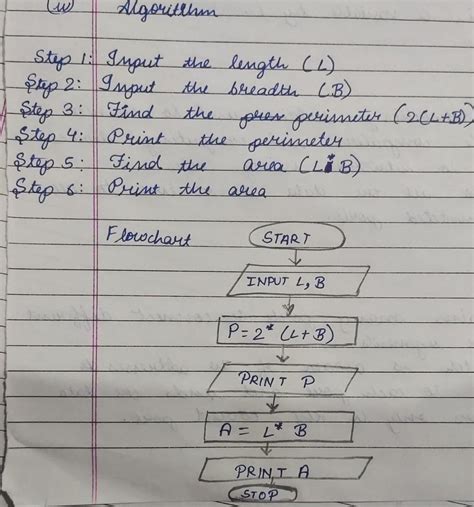 (iv) Algorithm
Step 1: Input the length (L)
Step 2: Input the breadth (B)
Step 3: Find the perimeter (2(L+B)
Step 4: Print the perimeter
Step 5: Find the area (L*B)
Step 6: Print the area
Flowchart
START
INPUT L, B
P = 2* (L+B)
PRINT P
A = L* B
PRINT A
STOP